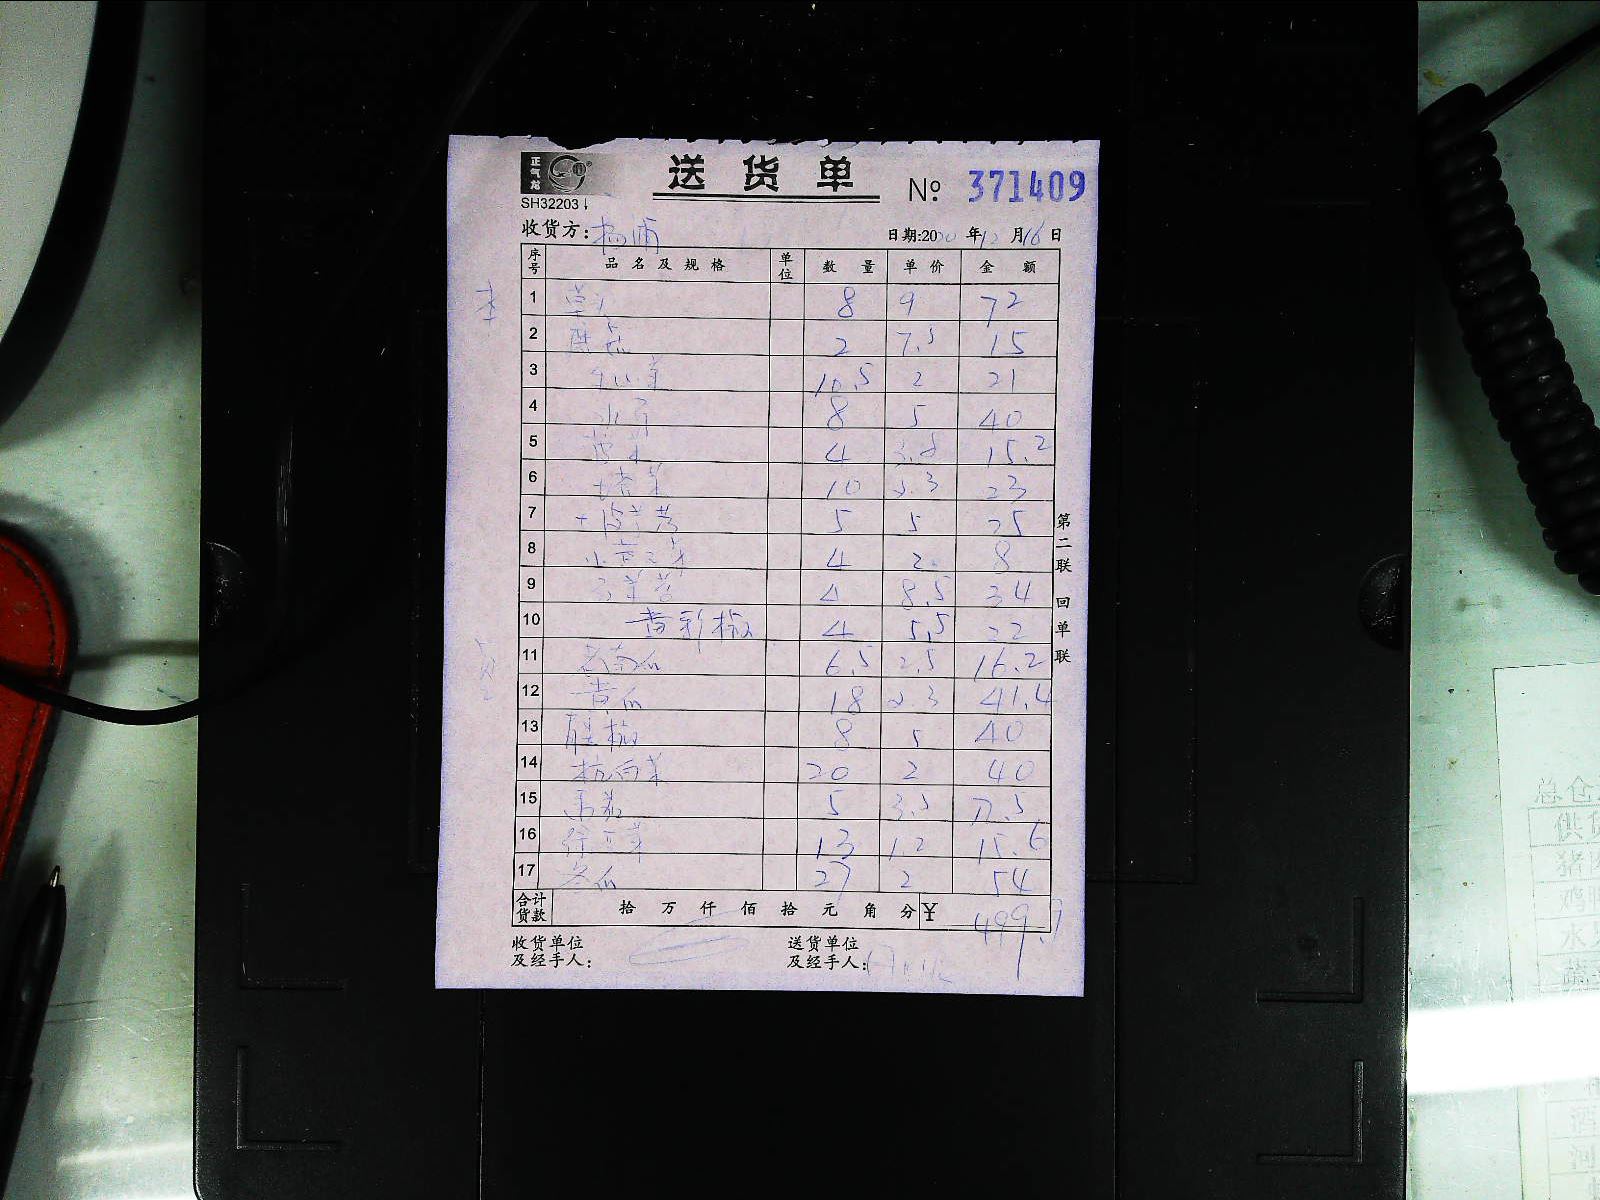 正气龙
SH32203
送货单
№ 371409
收货方: 杨浦
日期:2020年12月16日
序号 品名及规格 单位 数量 单价 金额
1 草头 8 9 72
2 蘑菇 2 7.5 15
3 10.5 2 21
4 水芹 8 5 40
5 菠菜 4 3.8 15.2
6 塔菜 10 2.3 23
7 5 5 25
8 4 2. 8
9 4 8.5 34
10 黄彩椒 4 5.5 22
11 老南瓜 6.5 2.5 16.2
12 黄瓜 18 2.3 41.4
13 8 5 40
14 杭白菜 20 2 40
15 5 3.5 17.5
16 13 1.2 15.6
17 冬瓜 27 2 54
合计货款 拾 万 仟 佰 拾 元 角 分 ¥ 499.9
收货单位及经手人:
送货单位及经手人:
第二联 回单联
总仓
供货